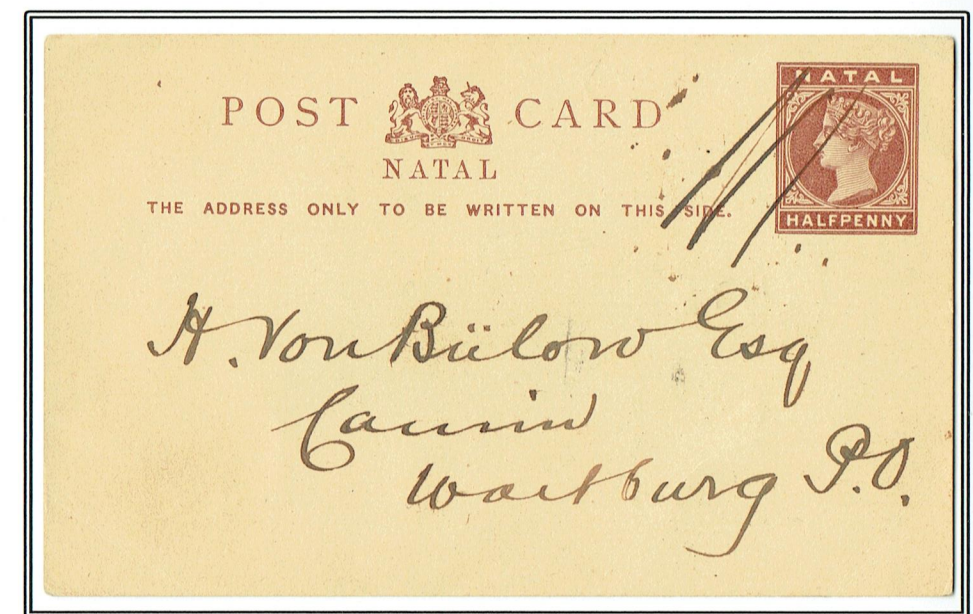 POST CARD
NATAL
THE ADDRESS ONLY TO BE WRITTEN ON THIS SIDE.
NATAL
HALFPENNY
H. Von Bülow Esq
Wartburg P.O.